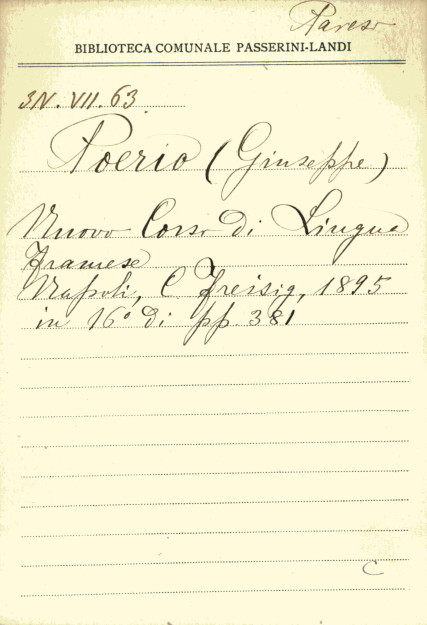 Pareso
BIBLIOTECA COMUNALE PASSERINI-LANDI
3N. VII. 63
Poerio (Giuseppe)
Nuovo Corso di Lingua
Francese
Napoli, C Freisig, 1895
in 16° di pp. 381
C